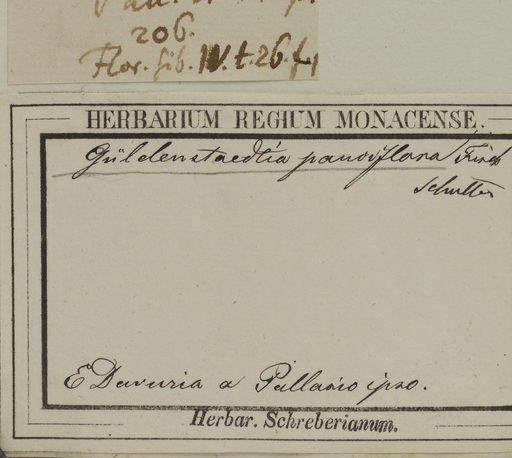 206.
Flor. sib. IV. t. 26. f.
HERBARIUM REGIUM MONACENSE.
Güldenstaedtia pauciflora Fisch
E Davuria a Pallasio ipso.
Herbar. Schreberianum.